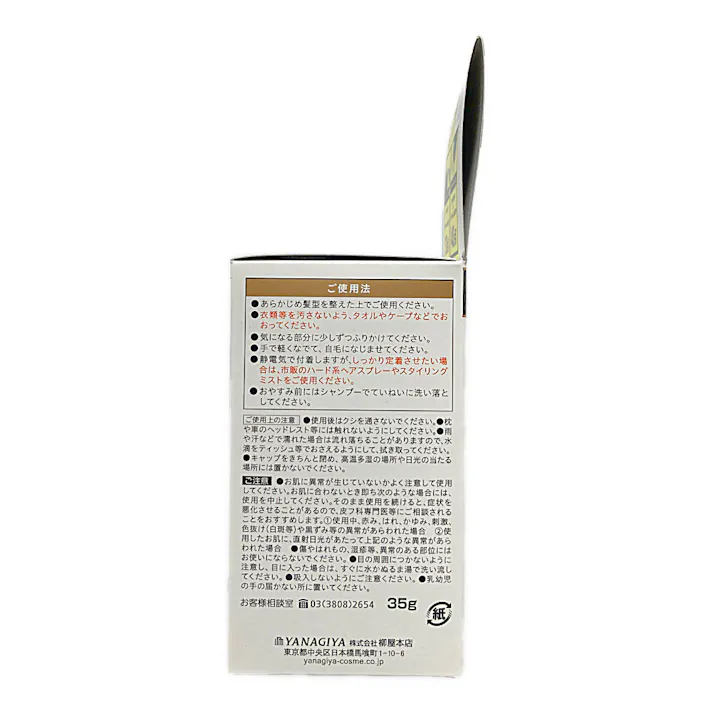 ご使用法
●あらかじめ髪型を整えた上でご使用ください。
●衣類等を汚さないよう、タオルやケープなどでお
おってください。
●気になる部分に少しずつふりかけてください。
●手で軽くなでて、自毛になじませてください。
●静電気で付着しますが、しっかり定着させたい場
合は、市販のハード系ヘアスプレーやスタイリング
ミストをご使用ください。
●おやすみ前にはシャンプーでていねいに洗い落と
してください。
ご使用上の注意 ●使用後はクシを通さないでください。●枕
や車のヘッドレスト等には触れないようにしてください。●雨
や汗などで濡れた場合は流れ落ちることがありますので、水
滴をティッシュ等でおさえるようにして、拭き取ってください。
●キャップをきちんと閉め、高温多湿の場所や日光の当たる
場所には置かないでください。
ご注意 ●お肌に異常が生じていないかよく注意して使用
してください。お肌に合わないとき即ち次のような場合には、
使用を中止してください。そのまま使用を続けると、症状を
悪化させることがあるので、皮フ科専門医等にご相談される
ことをおすすめします。①使用中、赤み、はれ、かゆみ、刺激、
色抜け(白斑等)や黒ずみ等の異常があらわれた場合 ②使
用したお肌に、直射日光があたって上記のような異常があら
われた場合 ●傷やはれもの、湿疹等、異常のある部位には
お使いにならないでください。●目の周囲につかないように
注意し、目に入った場合は、すぐに水かぬるま湯で洗い流し
てください。●吸入しないようにご注意ください。●乳幼児
の手の届かない所に置いてください。
お客様相談室 ☎03(3808)2654 35g 紙
YANAGIYA 株式会社柳屋本店
東京都中央区日本橋馬喰町1-10-6
yanagiya-cosme.co.jp